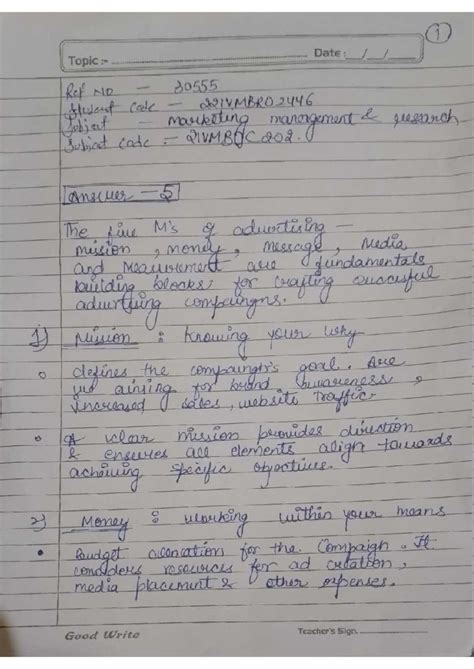 1
Topic :-
Date : / /
Ref NO - 30555
Student code - 221VMBR02446
Subject - marketing management & research
Subject code :- 21VMB0C202.
Answer - 5
The five M's of advertising -
mission, money, message, Media
and Measurement are fundamentals
building blocks for crafting successful
advertising compaigns.
1) Mission : Knowing your why
defines the compaingh's goal. Are
you aiming for brand awareness,
increased sales, website traffic.
A clear mission provides direction
& ensures all elements align towards
achieving specific objectives.
2) Money : working within your means
Budget allocation for the Compaigh. It
considers resources for ad creation,
media placement & other expenses.
Good Write
Teacher's Sign.